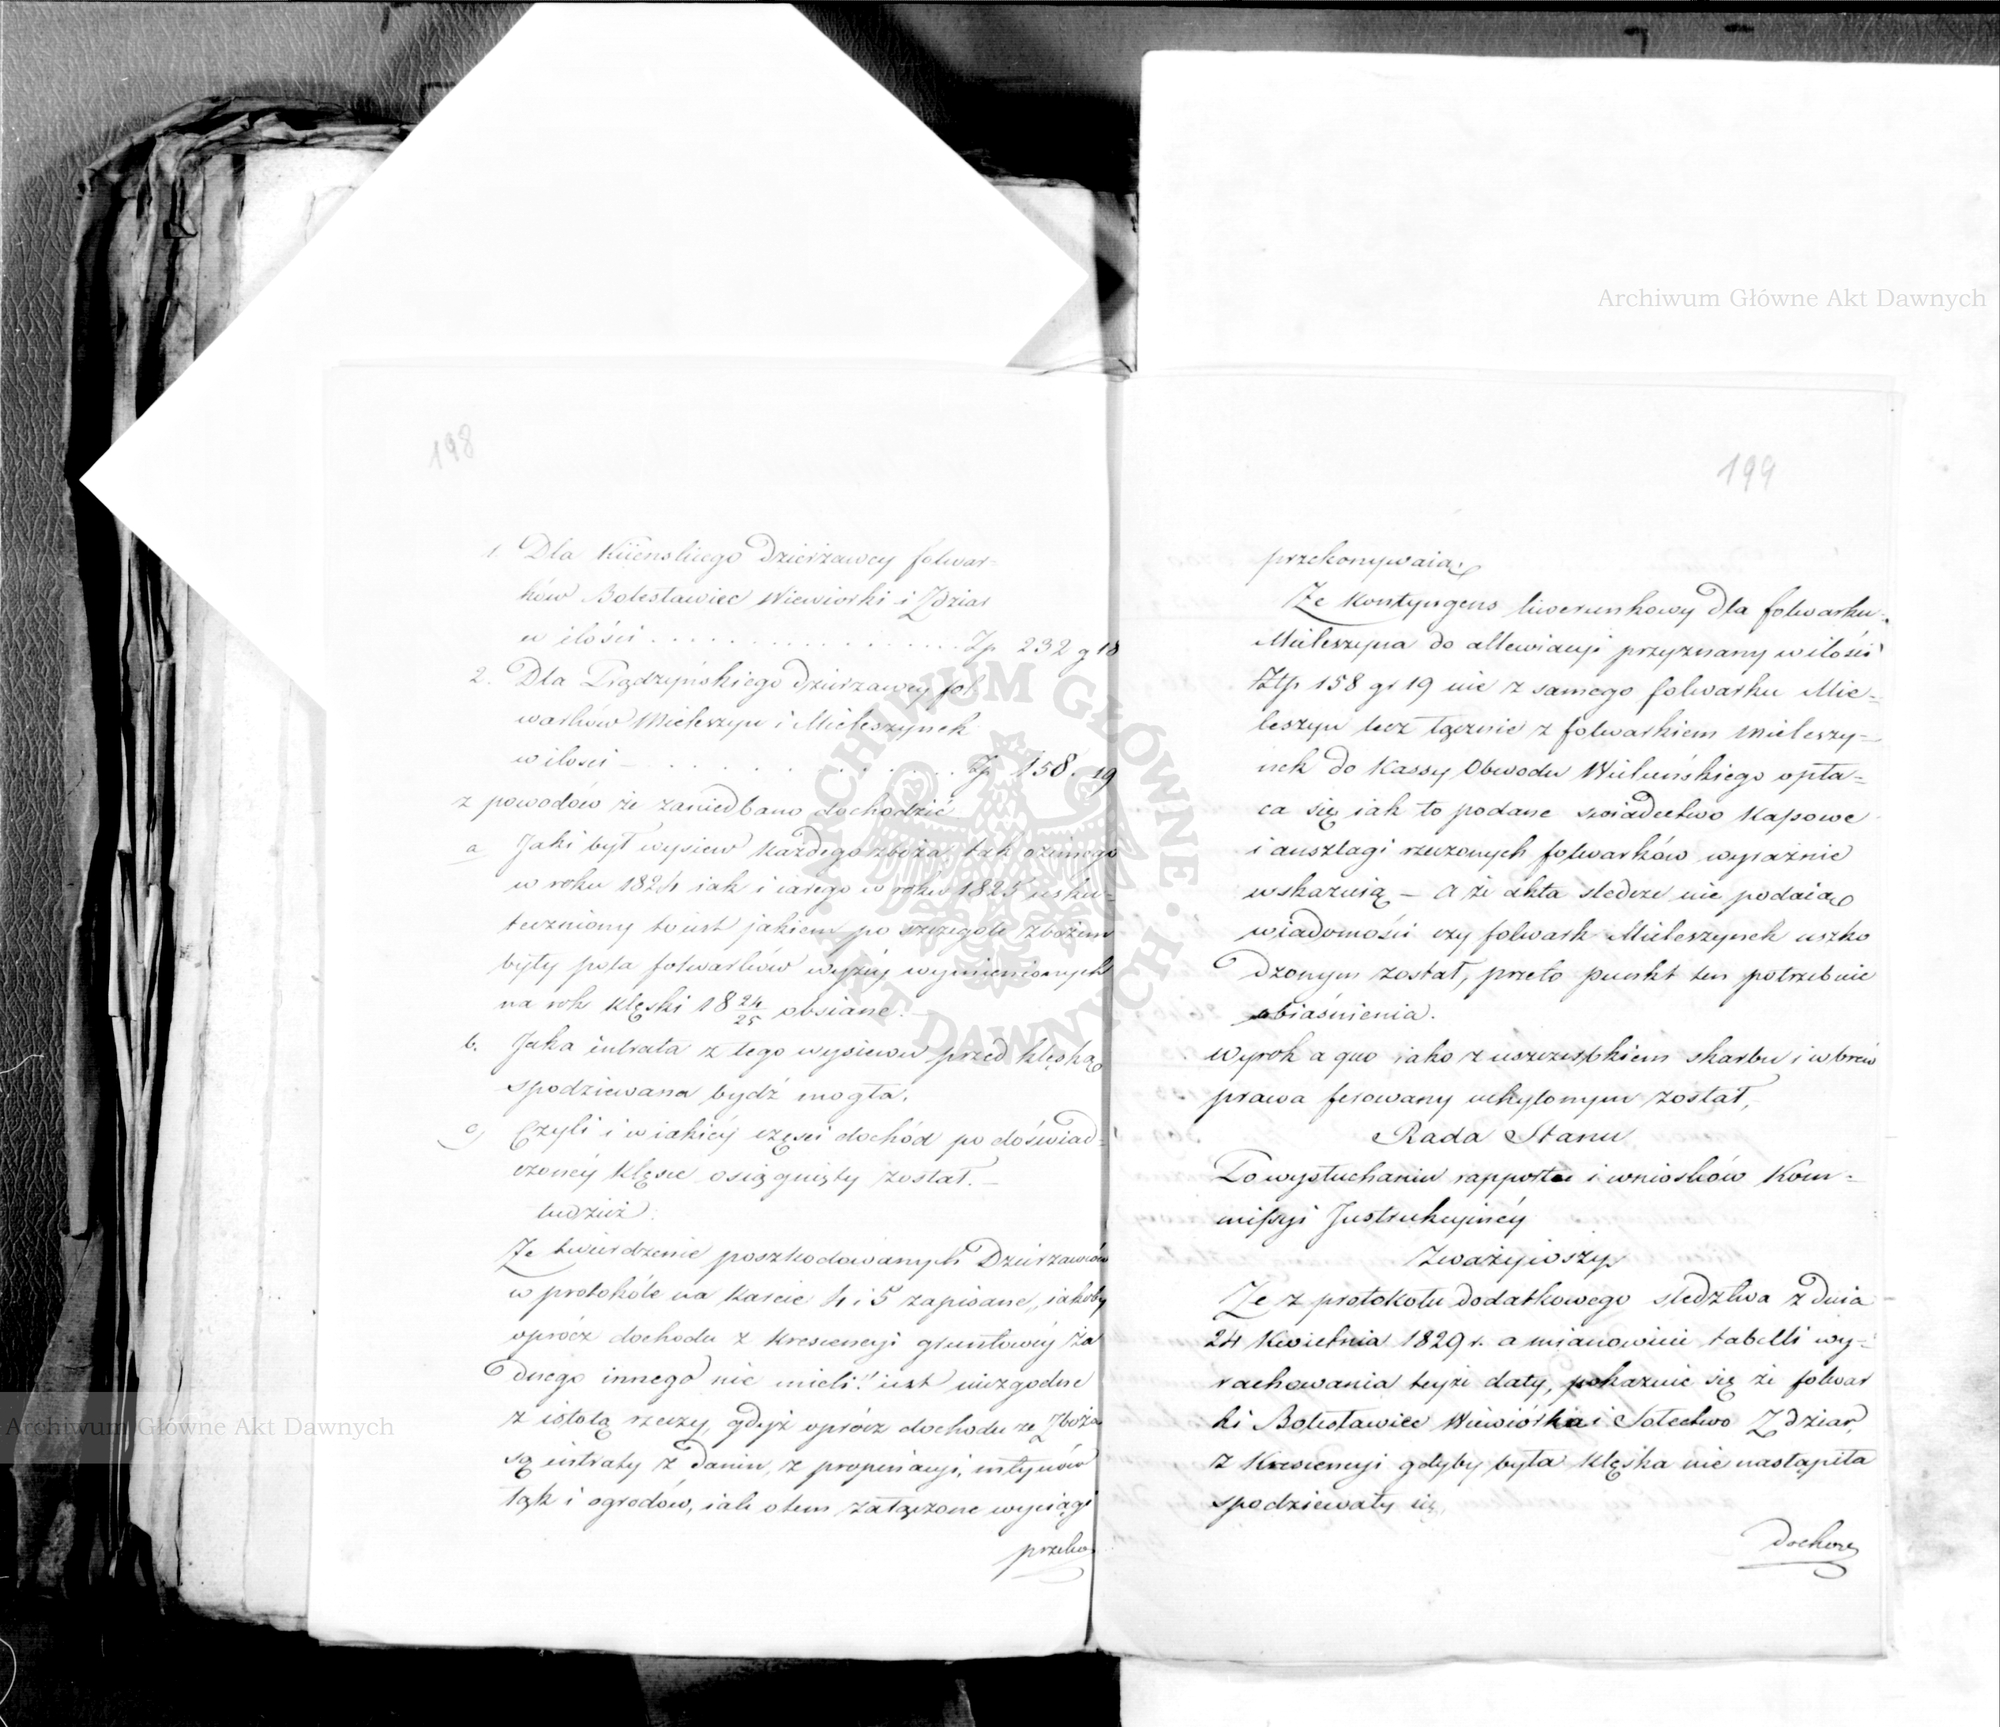 198
1. Dla Kiienskiego Dzierżawcy folwar-
ków Bolesławiec Wiewiorki i Zdziar
w ilości . . . . . . . . . . . . . . . . Zp 232 g 18
2. Dla Prądzyńskiego dzierzawcy fol-
warków Mieleszyn i Mieleszynek
w ilosci — . . . . . . . . . . . . Zp 158. 19
z powodów że zaniedbano dochodzić
a Jaki był wysiew każdego zboża tak ozimego
w roku 1824 iak i iarego w roku 1825 usku-
teczniony to iest jakiem po szczegole zbożem
były pola folwarków wyżey wymienionych
na rok klęski 18 24/25 obsiane. —
b. Jaka intrata z tego wysiewu przed klęską
spodziewana bydź mogła.
c) Czyli i w iakiey części dochód po doświad-
czoney klęsce osiągnięty został. —
tudzież:
Ze twierdzenie poszkodowanych Dzierzawców
w protokóle na karcie 4 i 5 zapisane „iakoby
oprócz dochodu z krescencyi gruntowey ża
dnego innego nie mieli" iest niezgodne
z istotą rzeczy, gdyż oprócz dochodu ze Zboża
są intraty z danin, z propinacyi, młynów
łąk i ogrodów, iak o tem załączone wyciągi
przeko
199
przekonywaią.
Ze kontyngens liwerunkowy dla folwarku
Mieleszyna do allewiacyi przyznany w ilości
Złp 158 gr 19 nie z samego folwarku Mie-
leszyn lecz łącznie z folwarkiem Mieleszy-
nek do Kassy Obwodu Wieluńskiego opła-
ca się iak to podane swiadectwo Kassowe
i auszlagi rzeczonych folwarków wyraźnie
wskazuią — a że akta sledcze nie podaią
wiadomości czy folwark Mieleszynek uszko
dzonym został, przeto punkt ten potrzebuie
obiaśnienia.
Wyrok a quo iako z uszczerbkiem skarbu i wbrew
prawa ferowany uchylonym został,
Rada Stanu
Po wysłuchaniu rapportu i wniosków Kom-
missyi Instrukcyiney
Zważywszy
Ze z protokołu dodatkowego sledztwa z dnia
24 Kwietnia 1829 r. a mianowicie tabelli wy-
rachowania teyże daty, pokazuie się że folwar
ki Bolesławiec Wiewiórka i Sołectwo Zdziar,
z Krescencyi gdyby była klęska nie nastąpiła
spodziewały się
dochod
Archiwum Główne Akt Dawnych
Archiwum Główne Akt Dawnych
ARCHIWUM GŁÓWNE · AKT DAWNYCH ·